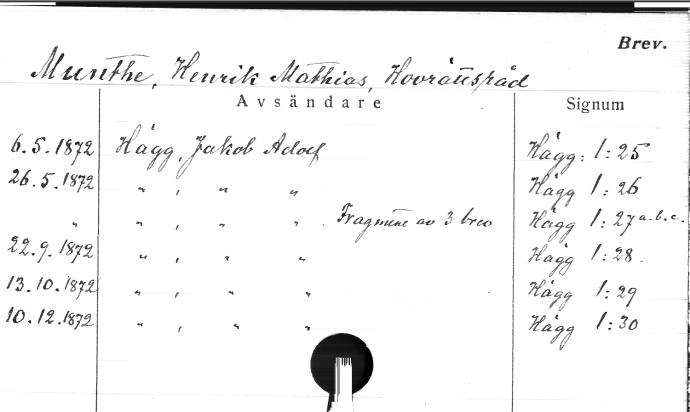 Brev.
Munthe, Henrik Mathias, Hovrättsråd
Avsändare Signum
6.5.1872 Hägg, Jakob Adolf Hägg: 1:25
26.5.1872 " , " " Hägg 1:26
" " , " " Fragment av 3 brev Hägg 1:27 a.b.c.
22.9.1872 " , " " Hägg 1:28.
13.10.1872 " , " " Hägg 1:29
10.12.1872 " , " " Hägg 1:30